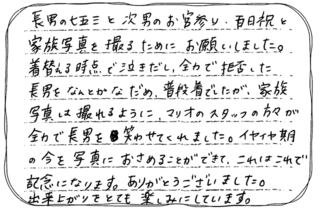 長男の七五三と次男のお宮参り、百日祝と
家族写真を撮るためにお願いしました。
着替える時点で泣きだし、全力で拒否した
長男をなんとかなだめ、普段着でしたが、家族
写真は撮れるように、マリオのスタッフの方々が
全力で長男を笑わせてくれました。イヤイヤ期
の今を写真におさめることができて、これはこれで
記念になります。ありがとうございました。
出来上がりをとても楽しみにしています。